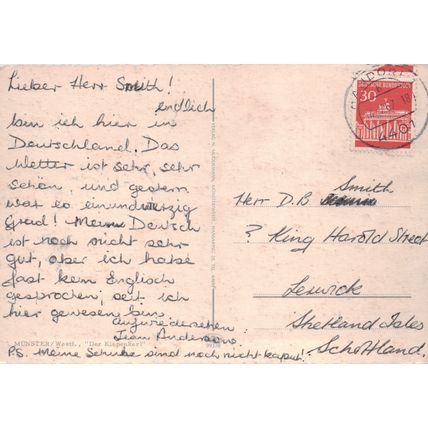 Lieber Herr Smith!
endlich
bin ich hier in
Deutschland. Das
Wetter ist sehr, sehr
schön, und gestern
war es einundvierzig
Grad! Mein Deutsch
ist noch nicht sehr
gut, aber ich habe
fast kein Englisch
gesprochen, seit ich
hier gewesen bin
aufwiedersehen
Jean Anderson.
MÜNSTER/Westf., "Der Kiepenkerl"
P.S. Meine Schuhe sind noch nicht kaput!
DEUTSCHE BUNDESPOST
30
4401
Smith
Herr D.B.
? King Harold Street
Lerwick
Shetland Isles
Schottland.